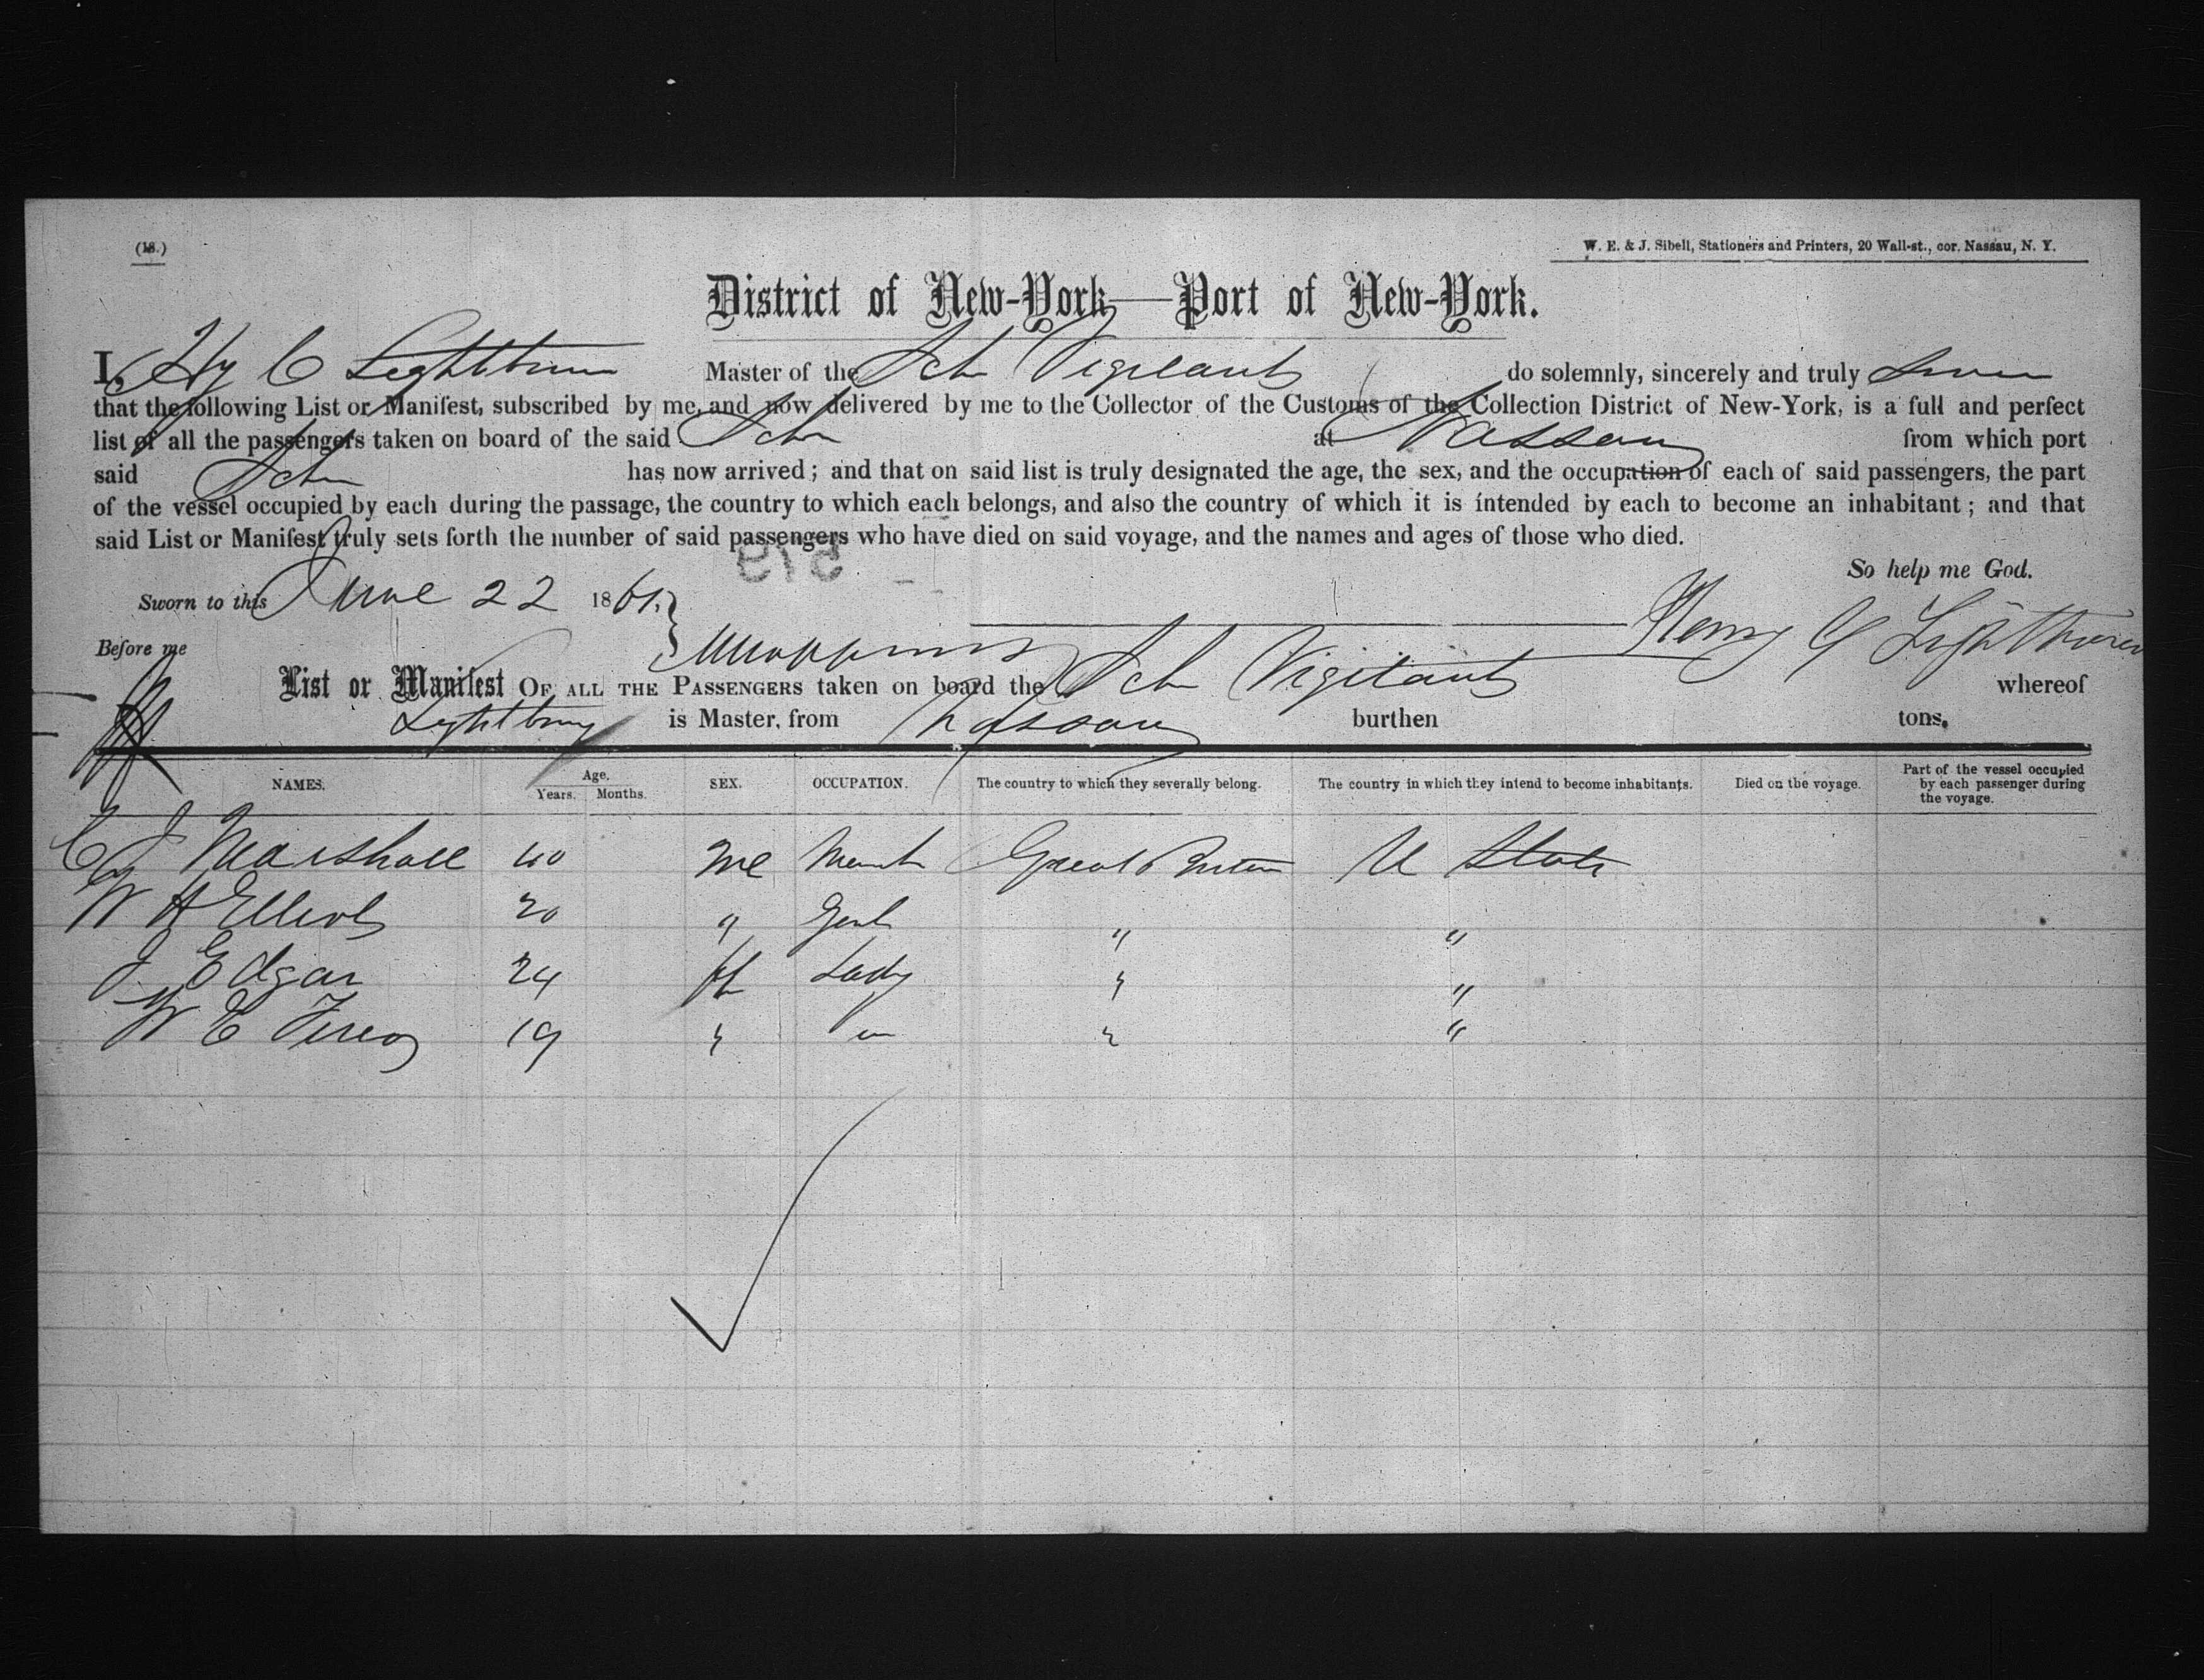 (18.)
W. E. & J. Sibell, Stationers and Printers, 20 Wall-st., cor. Nassau, N. Y.
District of New-York—Port of New-York.
I, Hy C Lightbourn Master of the Sch Vigilant do solemnly, sincerely and truly Swear
that the following List or Manifest, subscribed by me, and now delivered by me to the Collector of the Customs of the Collection District of New-York, is a full and perfect
list of all the passengers taken on board of the said Schr at Nassau from which port
said Schr has now arrived; and that on said list is truly designated the age, the sex, and the occupation of each of said passengers, the part
of the vessel occupied by each during the passage, the country to which each belongs, and also the country of which it is intended by each to become an inhabitant; and that
said List or Manifest truly sets forth the number of said passengers who have died on said voyage, and the names and ages of those who died.
So help me God.
Sworn to this June 22 1861,
Henry C Lightbourn
Before me
List or Manifest OF ALL THE PASSENGERS taken on board the Sch Vigilant whereof
Lightbourn is Master, from Nassau burthen tons.
NAMES. Age. Years. Months. SEX. OCCUPATION. The country to which they severally belong. The country in which they intend to become inhabitants. Died on the voyage. Part of the vessel occupied by each passenger during the voyage.
C J Marshall 40 Me Mercht Great Britain U States
W H Elliott 20 " Gent " "
J Edgar 24 f Lady " "
W E 19 " " "